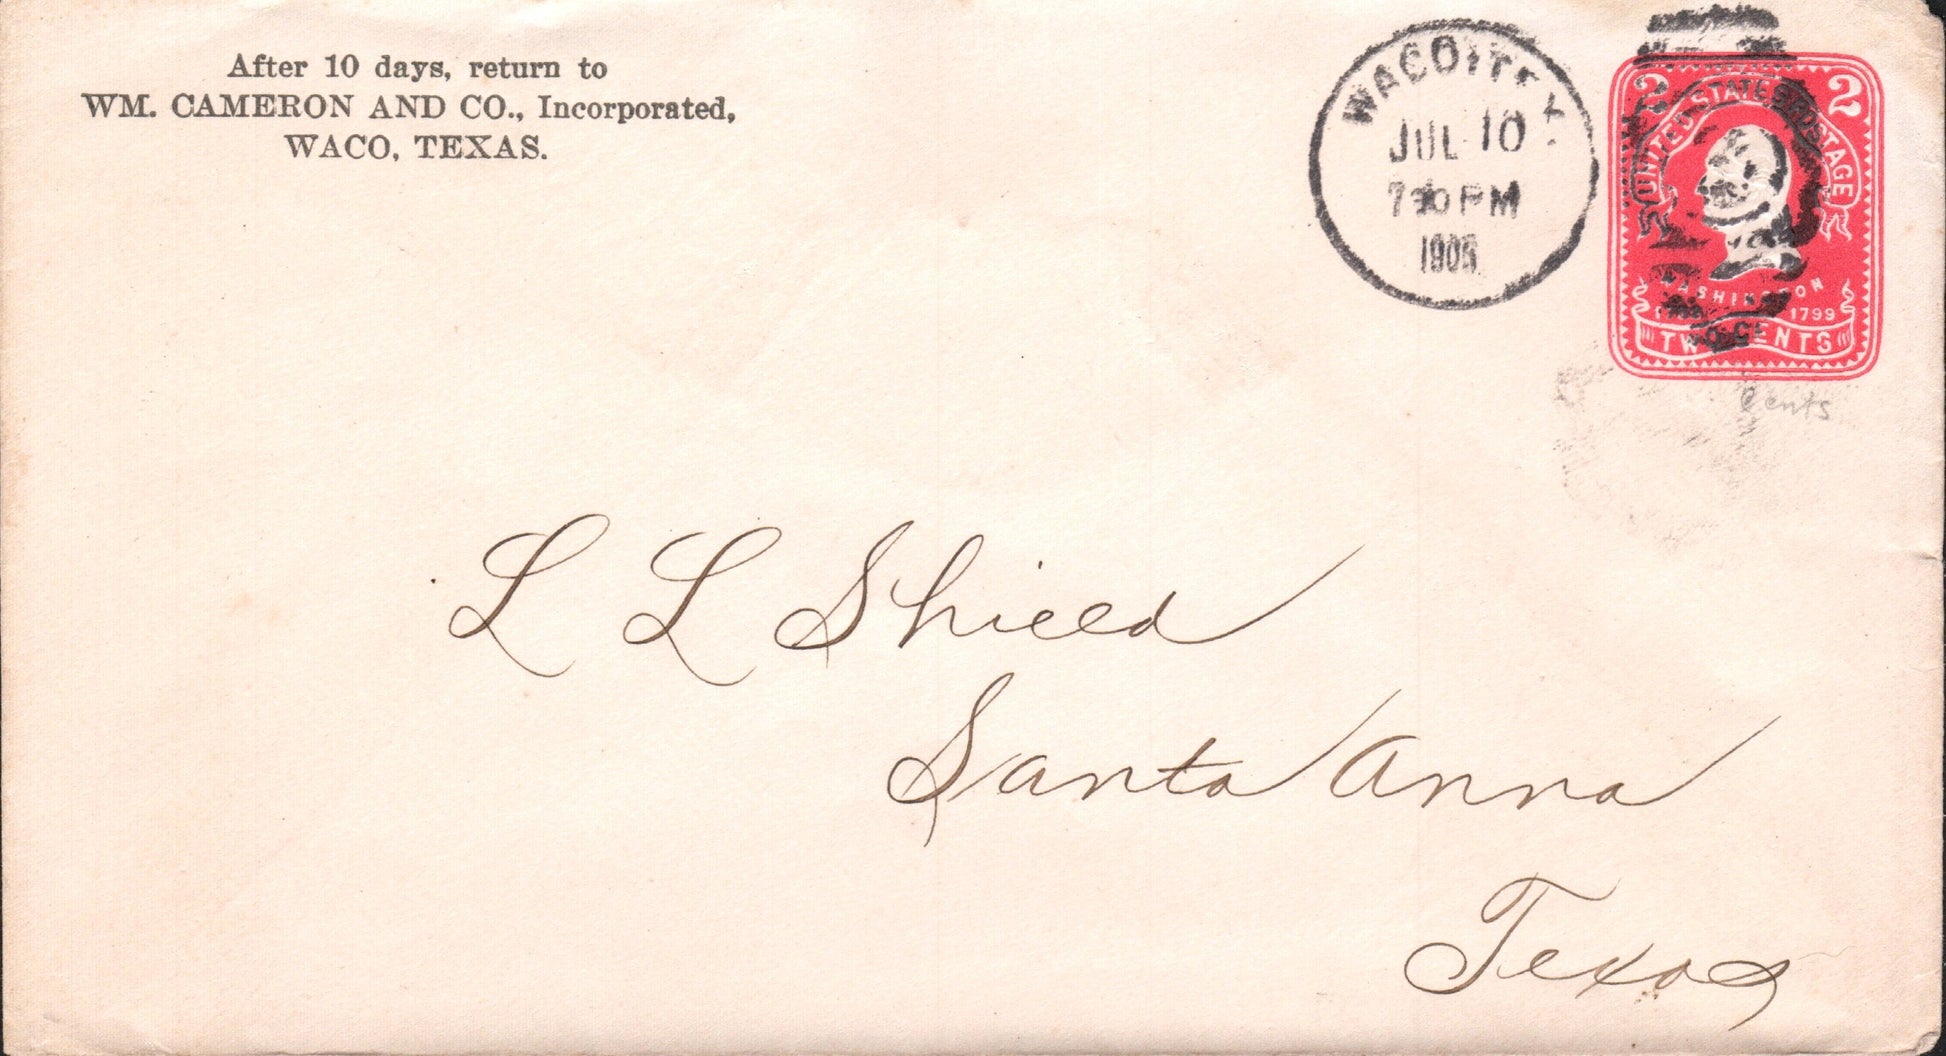 After 10 days, return to
WM. CAMERON AND CO., Incorporated,
WACO, TEXAS.
WACO, TEX.
JUL 10
7 30 PM
2 2
UNITED STATES POSTAGE
WASHINGTON
1799
TWO CENTS
Cents
L L Shield
Santa Anna
Texas